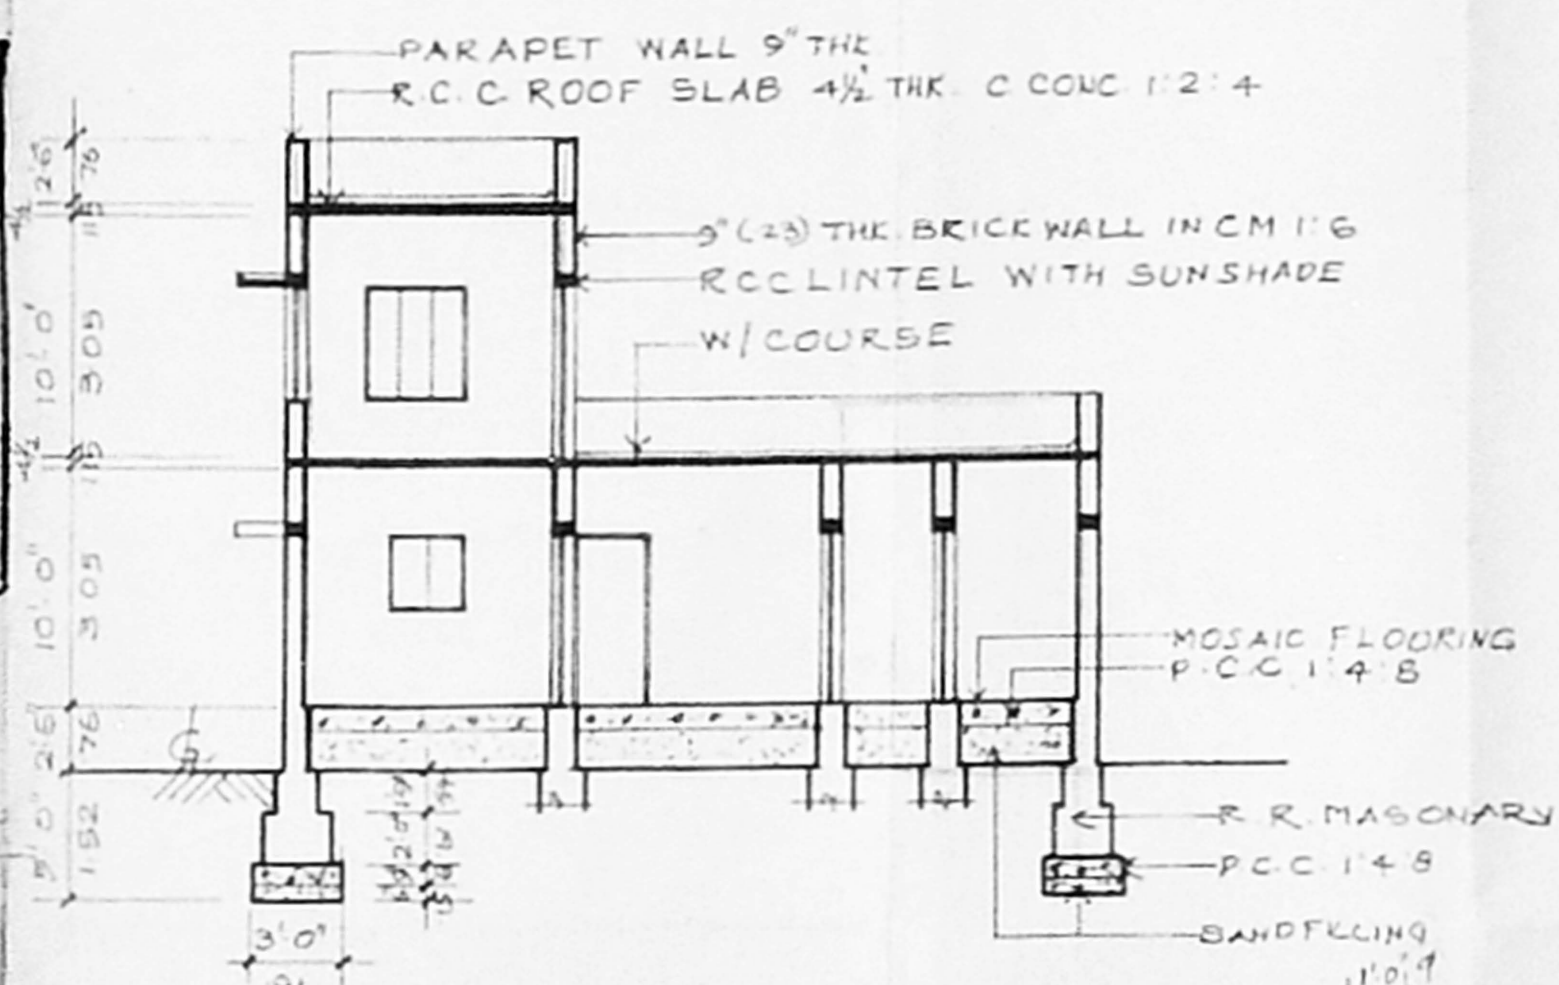 PARAPET WALL 9" THK
R.C.C. ROOF SLAB 4½" THK. C CONC 1:2:4
9" (23) THK. BRICK WALL IN CM 1:6
RCC LINTEL WITH SUNSHADE
W/COURSE
MOSAIC FLOURING
P.C.C. 1:4:8
R.R. MASONARY
P.C.C. 1:4:8
SANDFILLING
2'6"
76
4½
10'-0"
3 05
4½
15
10'-0"
3 05
2'6"
76
G
5'0"
1 52
2'0"
3'-0"